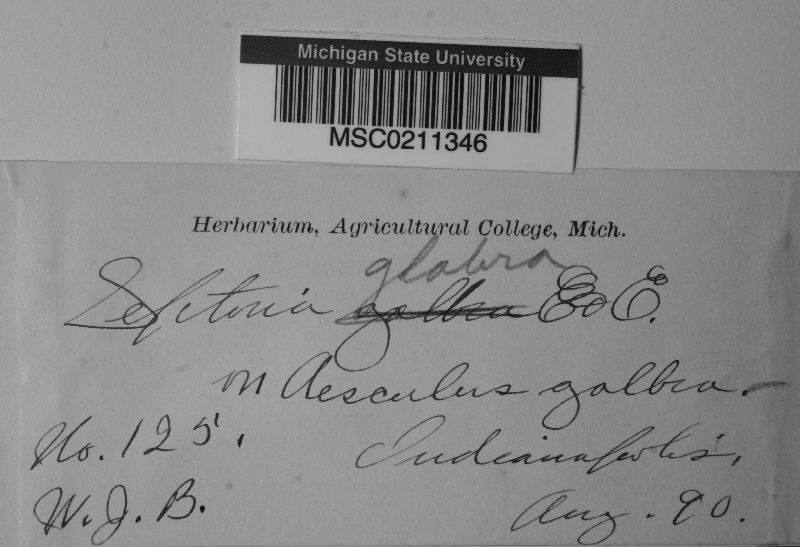 Michigan State University
MSC0211346
Herbarium, Agricultural College, Mich.
glabra
Septoria galbra E & E.
on Aesculus galbra.
No. 125.
Indianapolis,
W. J. B.
Aug. 90.